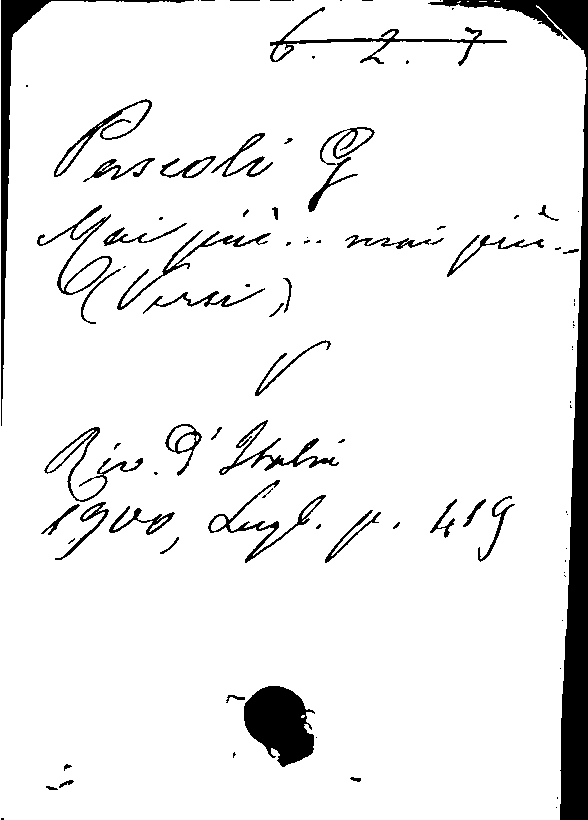 6. 2. 7
Pascoli G
Mai più... mai più...
(Versi)
V
Riv. d'Italia
1900, Lugl. p. 419